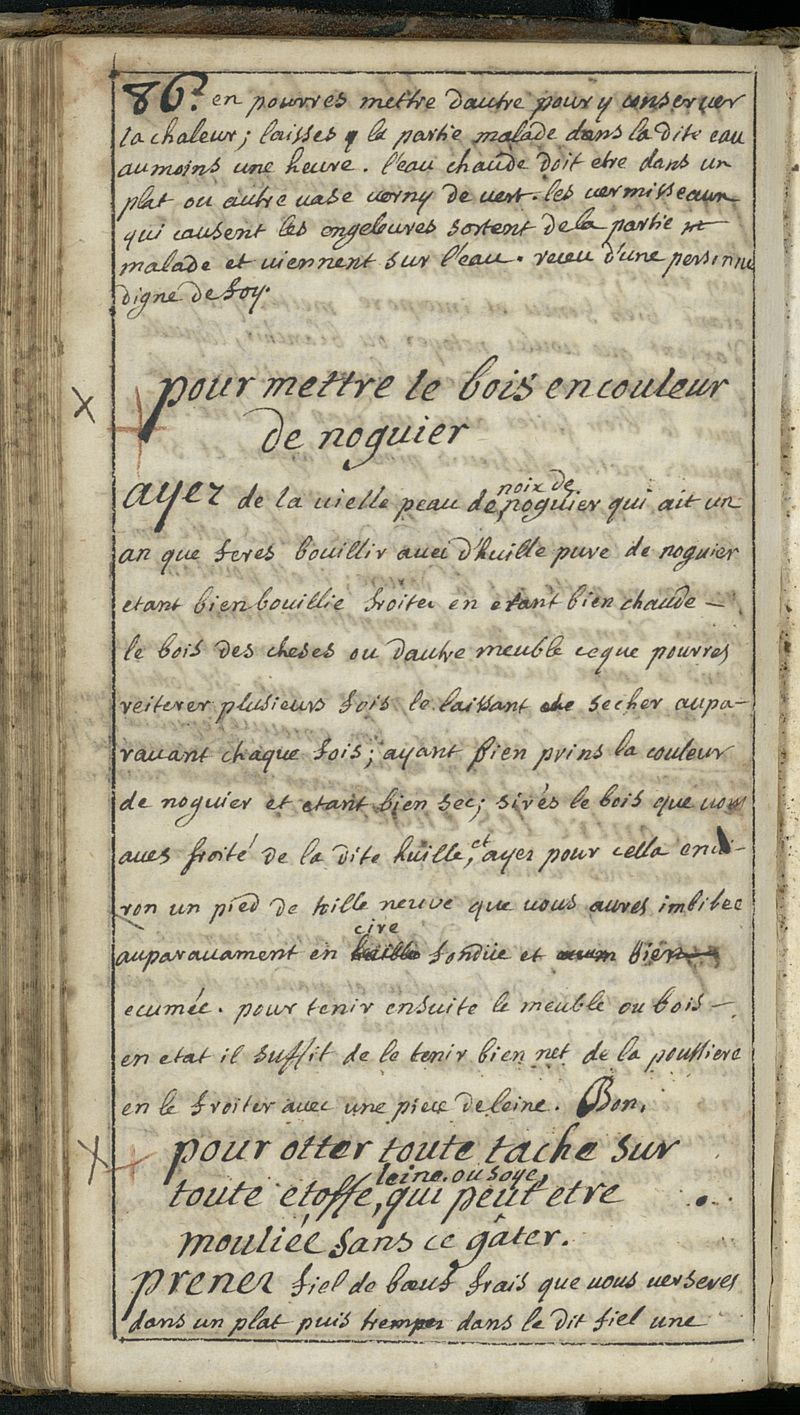 86. en pourres mettre dautre pour y conserver
la chaleur; laisses y la partie malade dans la dite eau
au moins une heure. l'eau chaude doit etre dans un
plat ou autre vase verny de vert. les vermisseaux
qui causent les engelures sortent de la partie
malade et viennent sur l'eau. receu d'une personne
digne de foy.
pour mettre le bois en couleur
de noguier
ayez de la vielle peau de noix de noguier qui ait un
an que feres bouillir avec d'huille pure de noguier
etant bien bouillie froiter en etant bien chaude
le bois des cheses ou dautre meuble ce que pourres
reiterer plusieurs fois le laissant secher aupa-
ravant chaque fois; ayant bien prins la couleur
de noguier et etant bien sec; sirés le bois que vous
aves froité de la dite huille, et ayez pour cella envi-
ron un pied de toille neuve que vous aures imbibee
auparavament en cire fondüe et bien
ecumée. pour tenir ensuite le meuble ou bois
en etat il suffit de le tenir bien net de la poussiere
en le froiter avec une piece de leine. Bon.
pour otter toute tache sur
toute etoffe, leine. ou soye, qui peut etre
mouliée sans ce gâter.
prenez fiel de bœuf frais que vous verseres
dans un plat puis tremper dans le dit fiel une